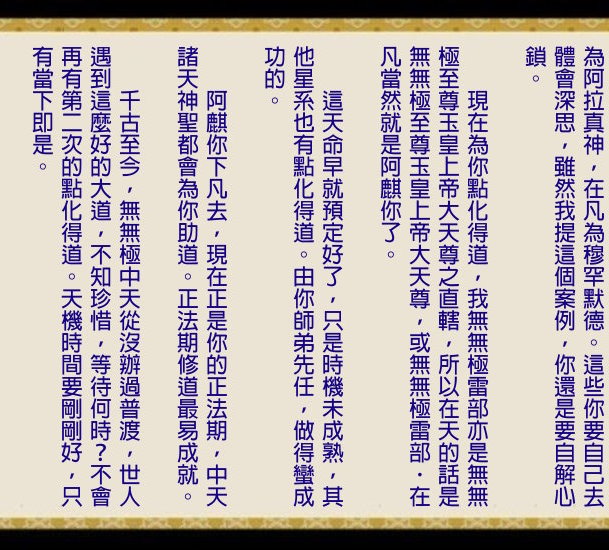 為阿拉真神，在凡為穆罕默德。這些你要自己去
體會深思，雖然我提這個案例，你還是要自解心
鎖。
現在為你點化得道，我無無極雷部亦是無無
極至尊玉皇上帝大天尊之直轄，所以在天的話是
無無極至尊玉皇上帝大天尊，或無無極雷部．在
凡當然就是阿麒你了。
這天命早就預定好了，只是時機未成熟，其
他星系也有點化得道。由你師弟先任，做得蠻成
功的。
阿麒你下凡去，現在正是你的正法期，中天
諸天神聖都會為你助道。正法期修道最易成就。
千古至今，無無極中天從沒辦過普渡，世人
遇到這麼好的大道，不知珍惜，等待何時？不會
再有第二次的點化得道。天機時間要剛剛好，只
有當下即是。